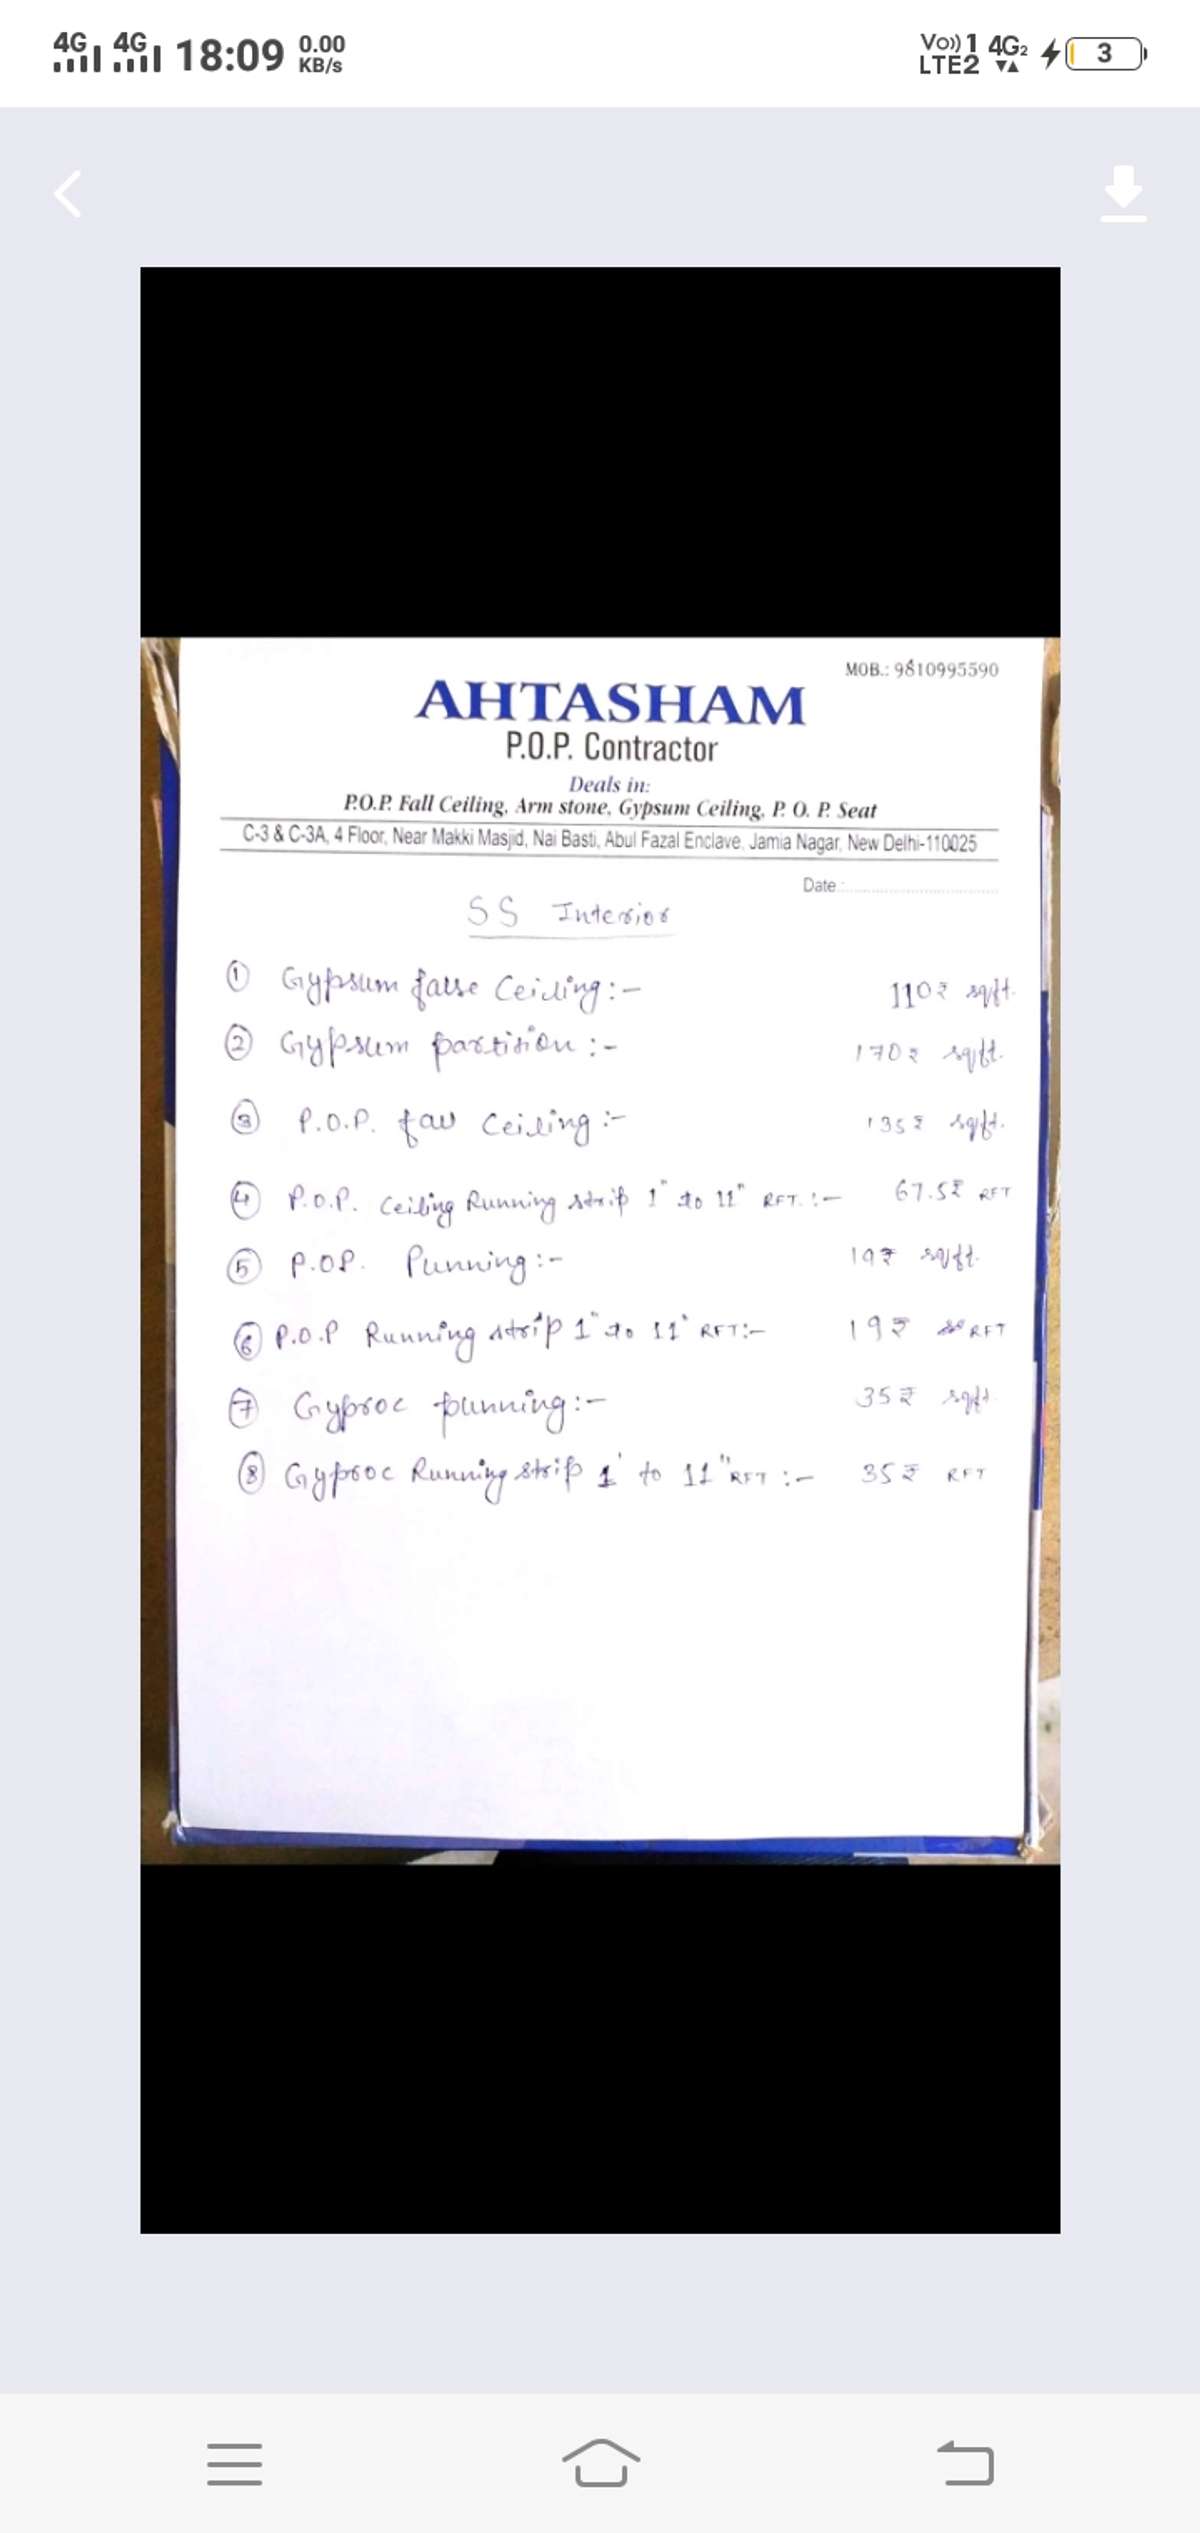 4G 4G 18:09 0.00 KB/s Vo)) 1 LTE2 4G2 3
MOB.: 9810995590
AHTASHAM
P.O.P. Contractor
Deals in:
P.O.P. Fall Ceiling, Arm stone, Gypsum Ceiling, P. O. P. Seat
C-3 & C-3A, 4 Floor, Near Makki Masjid, Nai Basti, Abul Fazal Enclave, Jamia Nagar, New Delhi-110025
Date :
SS Interior
① Gypsum false Ceiling :- 110₹ sqft.
② Gypsum partition :- 170₹ sqft.
③ P.O.P. fall Ceiling :- 135₹ sqft.
④ P.O.P. Ceiling Running strip 1" to 11" RFT. :- 67.5₹ RFT
⑤ P.OP. Punning :- 19₹ sqft.
⑥ P.O.P Running strip 1" to 11" RFT :- 19₹ RFT
⑦ Gyproc punning :- 35₹ sqft.
⑧ Gyproc Running strip 1' to 11" RFT :- 35₹ RFT